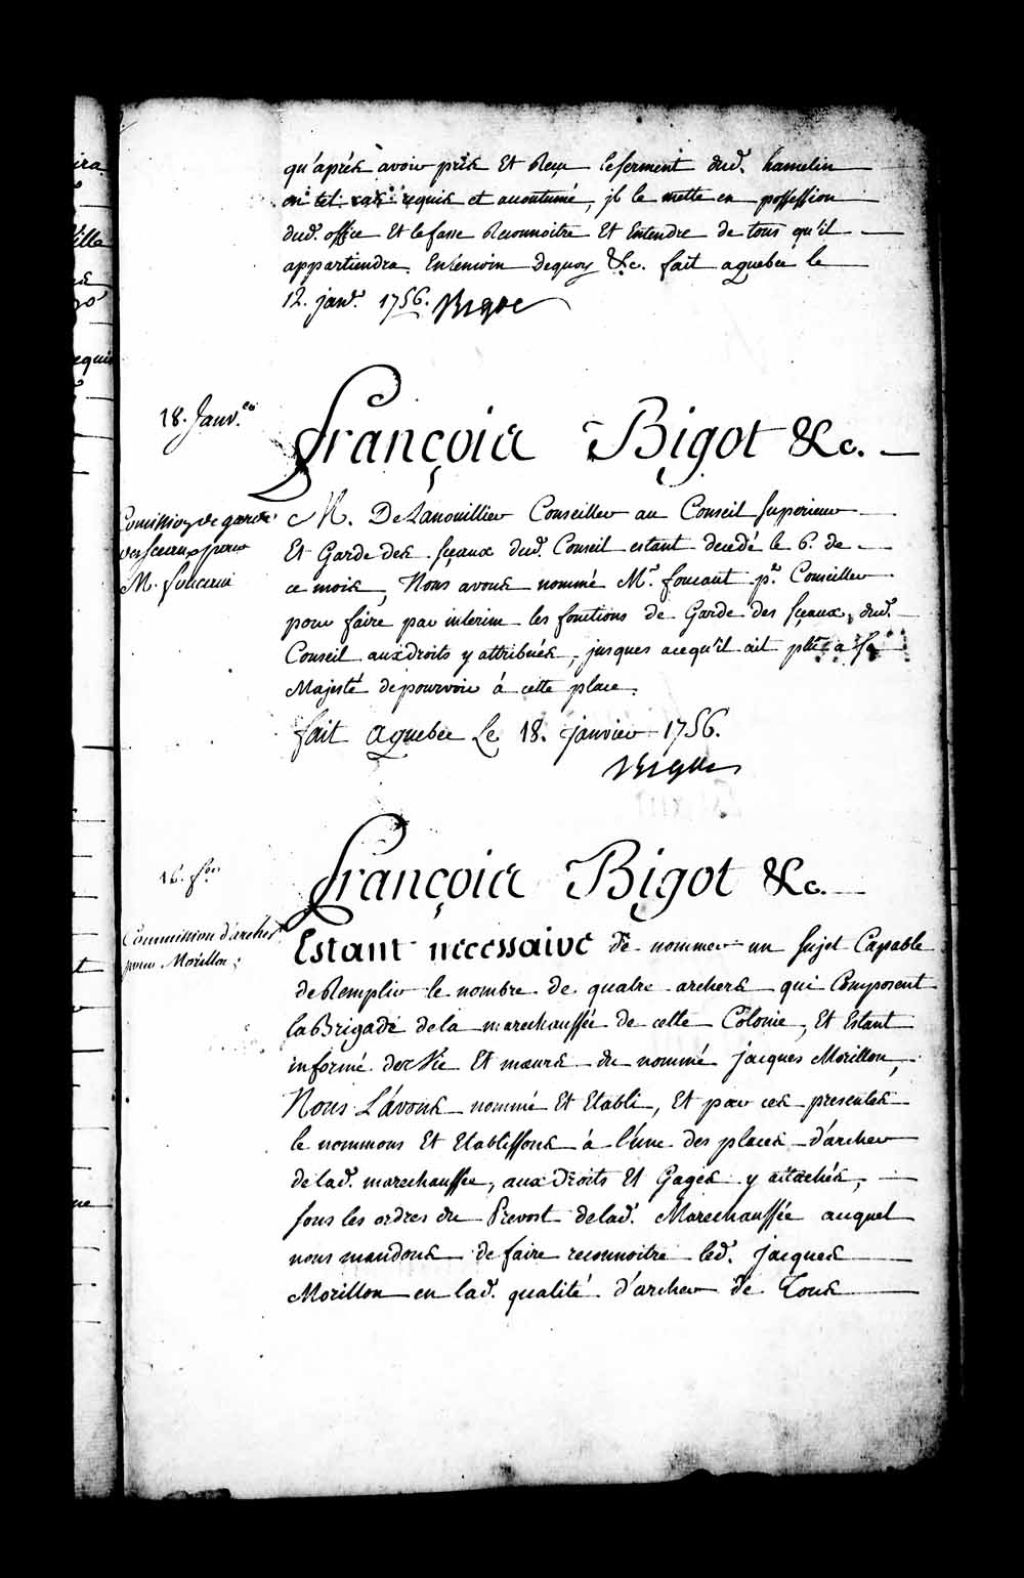 qu'aprés avoir pris Et Reçu le serment dud. hamelin
en tel cas requis et acoutumé, jl le mette en possession
dud. office Et le fasse Reconnoitre Et Entendre de tous qu'il
appartiendra. En temoin Dequoy &c. fait a quebec le
12. janv. 1756. Bigot
18. Janv.er
François Bigot &c.
Commission de garde
des sceaux pour
M. foucault
M. De Lanouillier Conseiller au Conseil superieur
Et Garde des sçeaux dud. Conseil estant decedé le 6. de
ce mois, Nous avons nommé M.r foucaut p.er Conseiller
pour faire par interim les fonctions de Garde des sçeaux dud.
Conseil aux droits y attribués, jusques acequ'il ait plu a sa
Majesté de pourvoir á cette place.
fait a quebec Le 18. janvier 1756.
Bigot
16. f.er
François Bigot &c.
Commission d'archer
pour Morillon;
Estant necessaire de nommer un sujet Capable
de Remplir le nombre de quatre archers qui Composent
la Brigade de la marechaussée de cette Colonie, Et Estant
informé des Vie Et mœurs du nommé jacques Morillon,
Nous L'avons nommé Et Etabli, Et par ces presentes
le nommons Et Etablissons á l'une des places d'archer
de lad. marechaussée, aux Droits Et Gages y attachés,
sous les ordres du Prevost delad. Marechaussée auquel
nous mandons de faire reconnoitre led. jacques
Morillon en lad. qualité d'archer de Tous